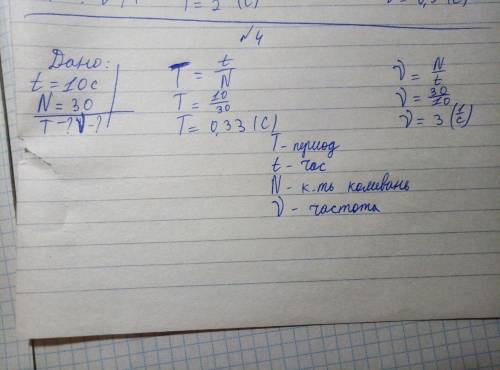 T = 2 (с)
№4
Дано:
t = 10с
N = 30
T-? ν-?
T = t/N
T = 10/30
T = 0,33 (с)
ν = N/t
ν = 30/10
ν = 3 (1/с)
T - период
t - час
N - к.ть коливань
ν - частота